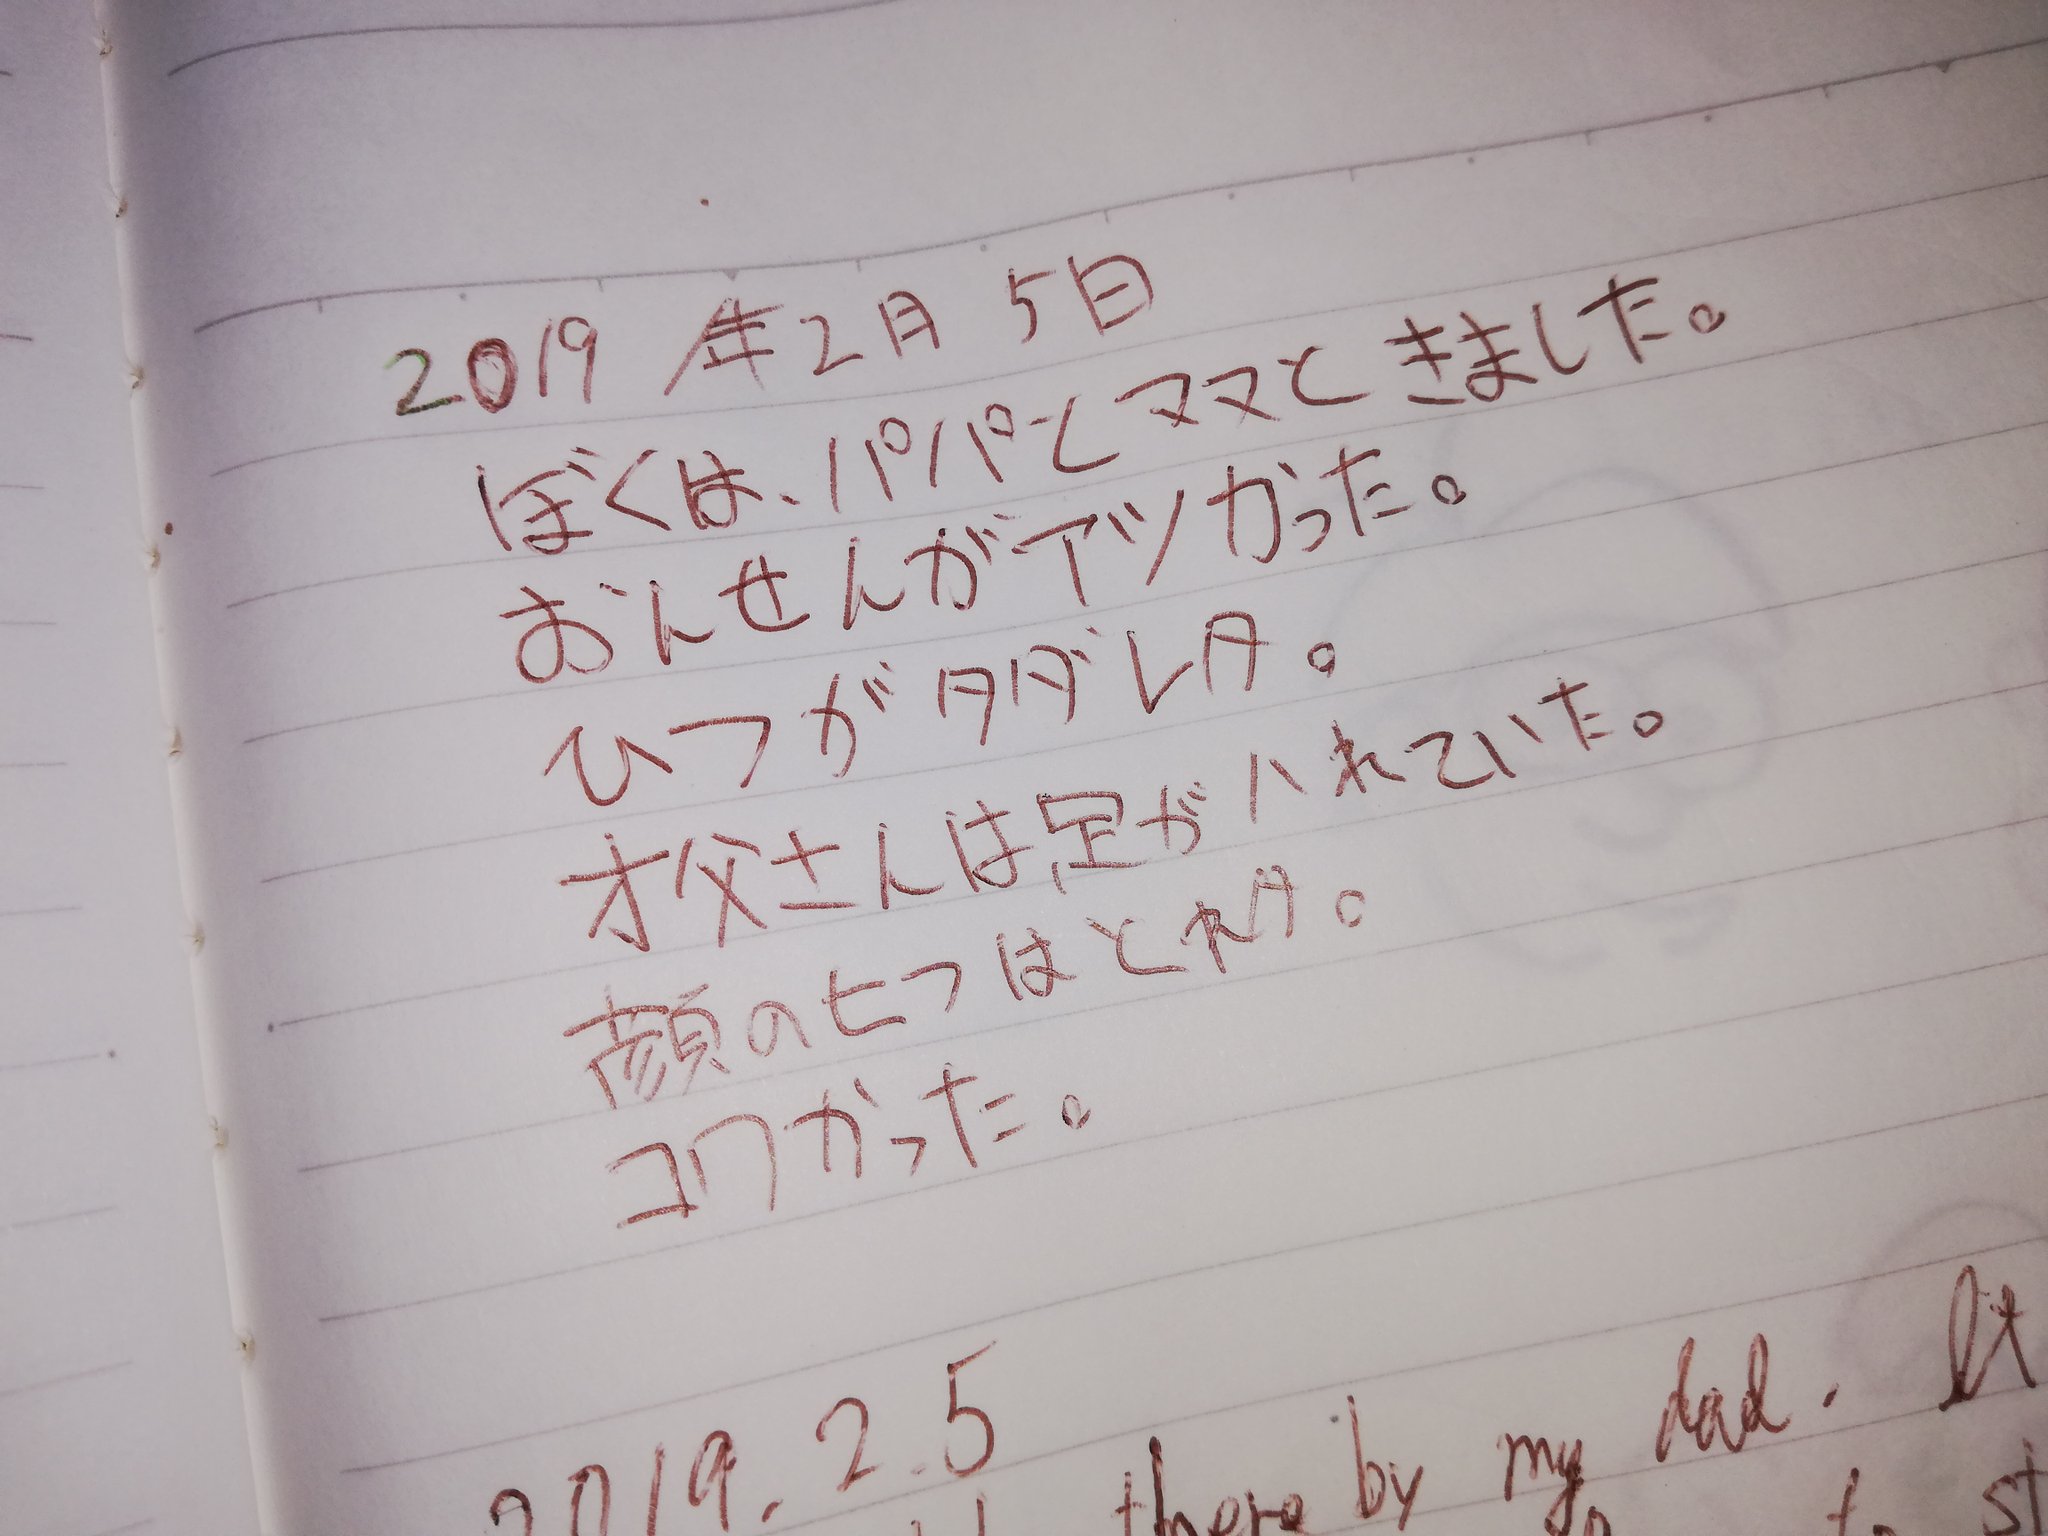 2019年2月5日
ぼくは、パパとママときました。
おんせんがアツかった。
ひつがタダレタ。
オ父さんは足がハれていた。
顔のヒフはとれタ。
コワかった。
2019.2.5
there by my dad. It